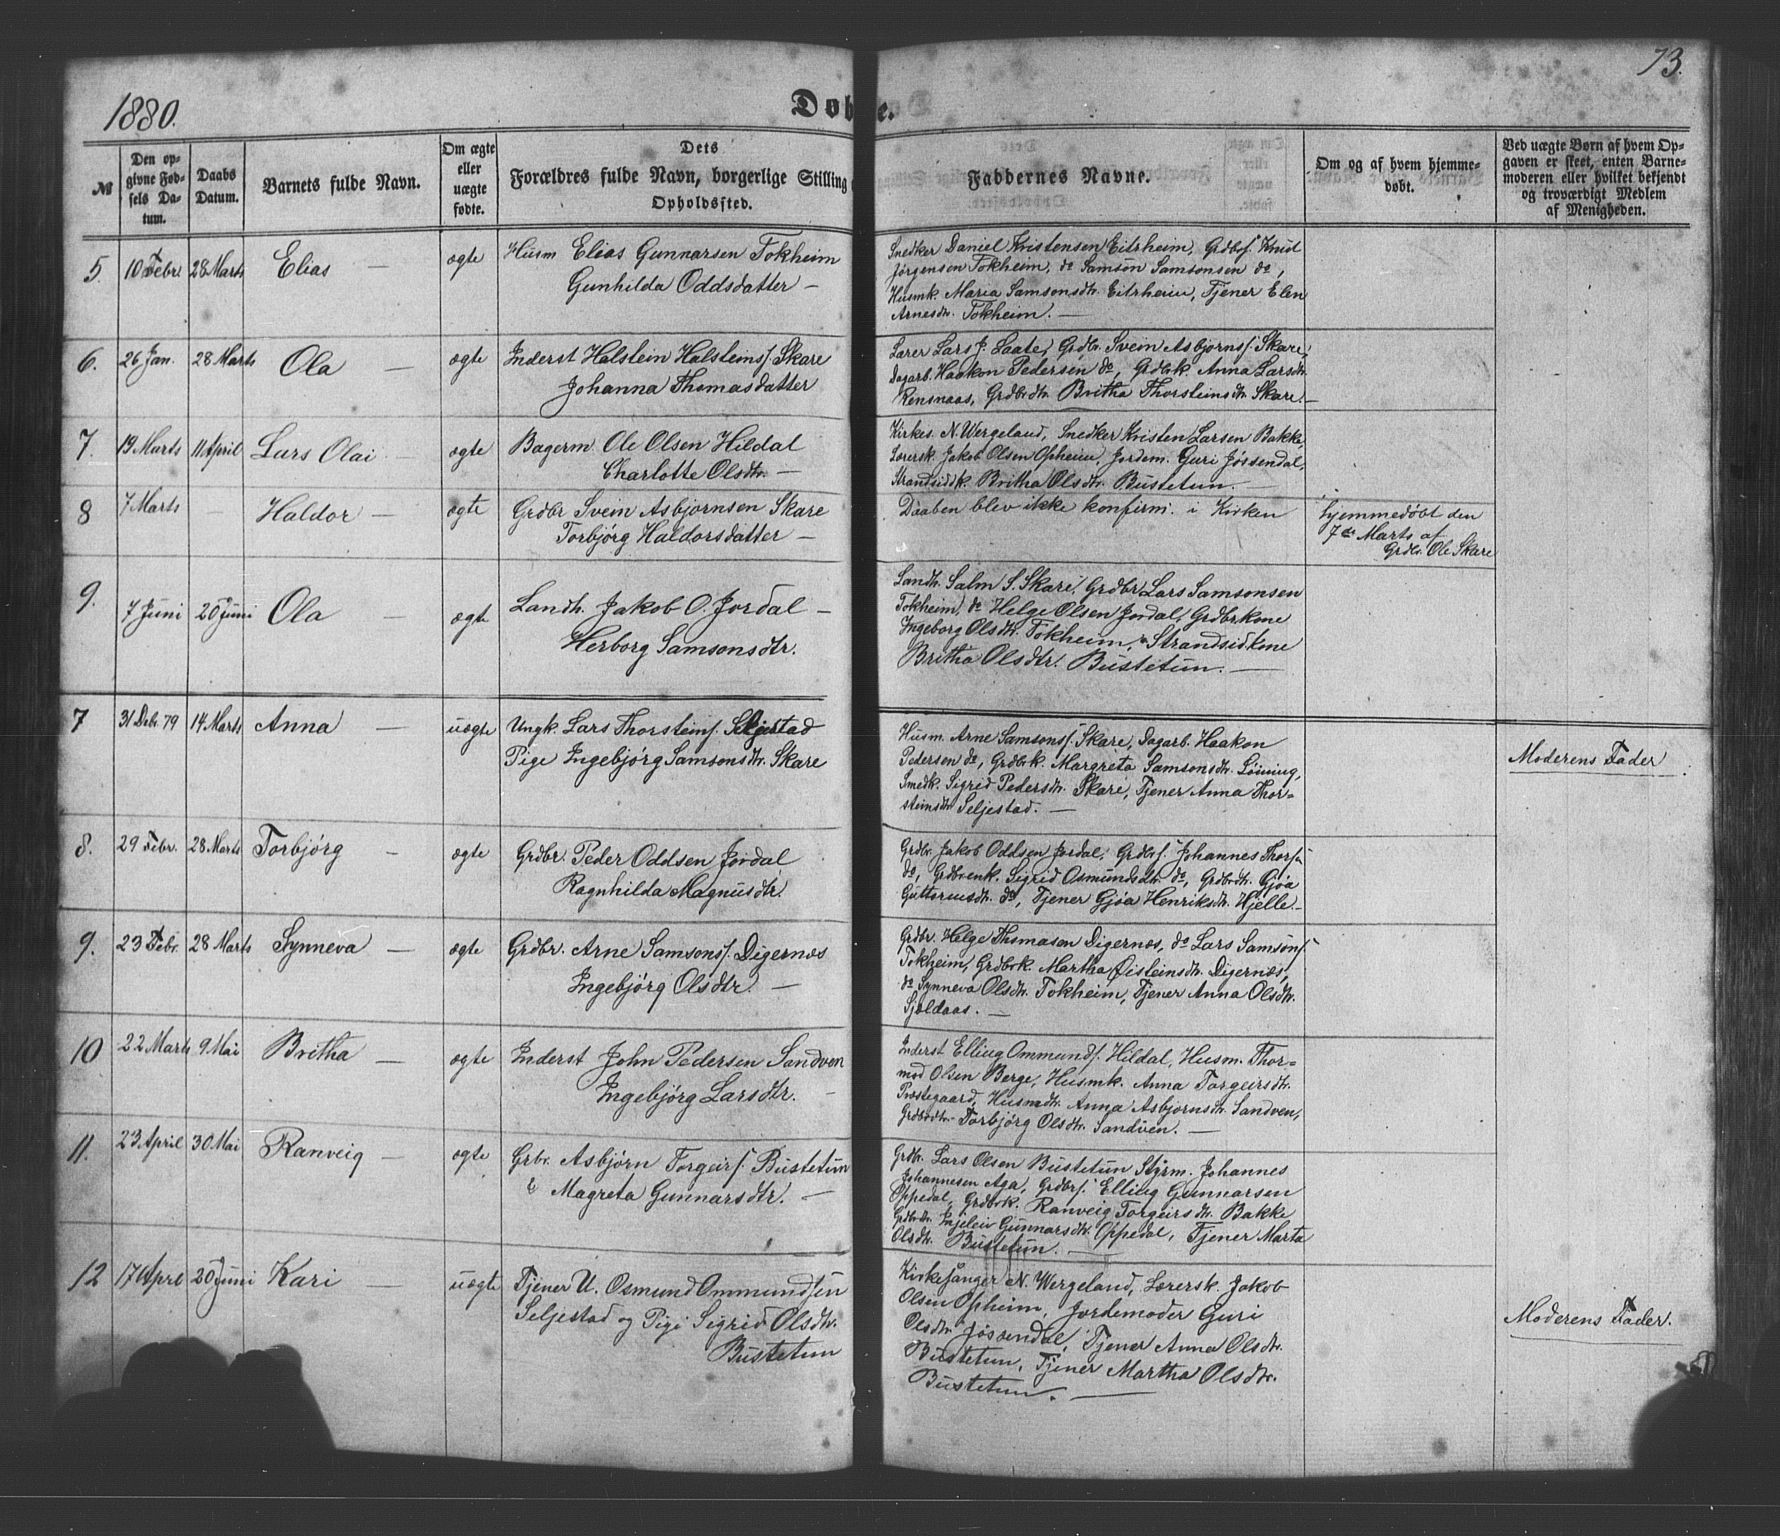 1880.
Døbte.
73.
№
Den op-
givne Fød-
sels Da-
tum.
Daabs
Datum.
Barnets fulde Navn.
Om ægte
eller
uægte
fødte.
Dets
Forældres fulde Navn, borgerlige Stilling
Opholdssted.
Faddernes Navne.
Om og af hvem hjemme-
døbt.
Ved uægte Børn af hvem Op-
gaven er skeet, enten Barne-
moderen eller hvilket bekjendt
og troværdigt Medlem
af Menigheden.
5. 10 Febr 28 Marts Elias — ægte
Husm Elias Gunnarsen Tokheim
Gunhilda Oddsdatter —
Snedker Daniel Kristensen Eitrheim, Grdbrs. Knut
Jørgensen Tokheim, do Samson Samsonsen do,
Husmk. Maria Samsonsdtr. Eitrheim, Tjener Elen
Arnesdtr. Tokheim. —
6. 26 Jan. 28 Marts Ola — ægte
Inderst Halstein Halsteins. Skare
Johanna Thomasdatter
Lærer Lars J. Laate, Grdbr. Svein Asbjørns. Skare,
Dagarb. Haakon Pedersen do, Grdbrk Anna Larsdtr.
Rensnaas, Grdbrdtr. Britha Thorsteinsdtr Skare. —
7. 19 Marts 11 April Lars Olai — ægte
Bagerm. Ole Olsen Hildal
Charlotte Olsdtr. —
Kirkes. N. Wergeland, Snedker Kristen Larsen Bakke
Lærersk. Jakob Olsen Opheim, Jordem. Guri Jøssendal,
Strandsidk. Britha Olsdtr. Bustetun. —
8 7 Marts Haldor — ægte
Grdbr Svein Asbjørnsen Skare
Torbjørg Haldorsdatter —
Daaben blev ikke konfirm. i Kirken
hjemmedøbt den
7de Marts af
Grdbr. Ole Skare
9. 7 Juni 20 Juni Ola — ægte
Landh. Jakob O. Jordal —
Herborg Samsonsdtr.
Landh. Salm S. Skare, Grdbr Lars Samsonsen
Tokheim, do Helge Olsen Jordal, Grdbrkone
Ingeborg Olsdtr. Tokheim, Strandsidkone
Britha Olsdtr. Bustetun. —
7 31 Debr 79 14 Marts Anna — uægte
Ungk. Lars Thorsteins. Seljestad
Pige Ingebjørg Samsonsdtr. Skare
Husm. Arne Samsons. Skare, Dagarb. Haakon
Pedersen do, Grdbrk. Margreta Samsonsdtr. Løining,
Smedk. Sigrid Pedersdtr. Skare, Tjener Anna Thor-
steinsdtr Seljestad. —
Moderens Fader
8. 29 Febr. 28 Marts Torbjørg — ægte
Grdbr. Peder Oddsen Jordal
Ragnhilda Magnusdtr.
Grdbr. Jakob Oddsen Jordal, Grdbrs. Johannes Thors.
do, Grdbrenk. Sigrid Osmundsdtr. do, Grdbrdtr. Gjøa
Guttormsdtr. do, Tjener Gjøa Henriksdtr. Hjelle. —
9. 23 Febr. 28 Marts Synneva — ægte
Grdbr. Arne Samsons. Digernæs
Ingebjørg Olsdtr. —
Grdbr. Helge Thomasen Digernæs, do Lars Samsons.
Tokheim, Grdbrk. Martha Øisteinsdtr. Digernæs,
do Synneva Olsdtr. Tokheim, Tjener Anna Olsdtr.
Sjoldaas. —
10 22 Marts 9 Mai Britha — ægte
Inderst John Pedersen Sandven
Ingebjørg Larsdtr. —
Inderst Elling Ommunds. Hildal, Husm. Thor-
mod Olsen Berge, Husmk. Anna Torgeirsdtr.
Præstegaard, Husmdtr. Anna Asbjørnsdtr. Sandven,
Grdbrdtr. Torbjørg Olsdtr. Sandven. —
11. 23 April 30 Mai Ranveig — ægte
Grbr. Asbjørn Torgeirs. Bustetun
& Magreta Gunnarsdtr. —
Grdbr. Lars Olsen Bustetun Styrm. Johannes
Johannesen Aga, Grdbrs. Elling Gunnarsen
Oppedal, Grdbrk. Ranveig Torgeirsdtr. Bakke
Grdbrdtr. Injeleiv Gunnarsdtr. Oppedal, Tjener Marta
Olsdtr. Bustetun. —
12 17 Aprl 20 Juni Kari — uægte
Tjener U. Osmund Ommundsen
Seljestad og Pige Sigrid Olsdtr.
Bustetun
Kirkesånger N. Wergeland, Lærersk. Jakob
Olsen Opheim, Jordemoder Guri
Olsdtr. Jøssendal, Tjener Anna Olsdtr.
Bustetun, Tjener Martha Olsdtr.
Bustetun. —
Moderens Fader.